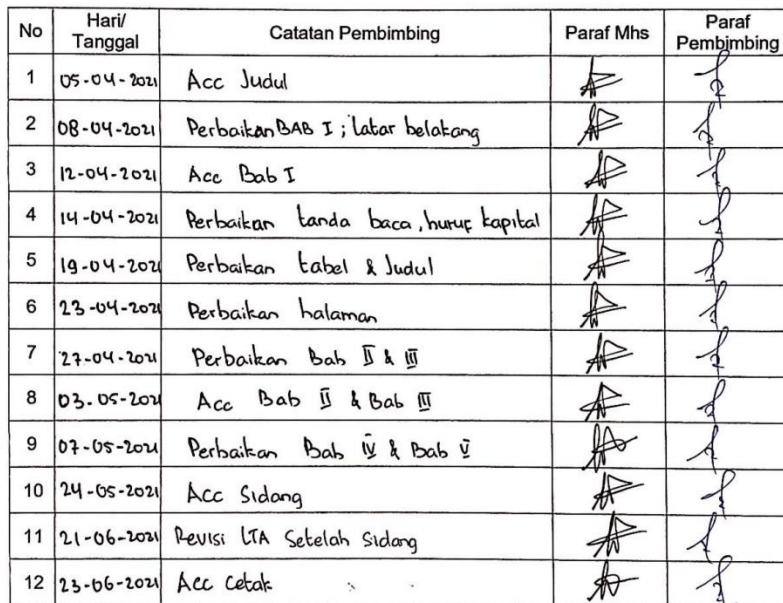 No Hari/ Tanggal Catatan Pembimbing Paraf Mhs Paraf Pembimbing
1 05-04-2021 Acc Judul
2 08-04-2021 Perbaikan BAB I ; latar belakang
3 12-04-2021 Acc Bab I
4 14-04-2021 Perbaikan tanda baca, huruf kapital
5 19-04-2021 Perbaikan tabel & Judul
6 23-04-2021 Perbaikan halaman
7 27-04-2021 Perbaikan Bab II & III
8 03-05-2021 Acc Bab II & Bab III
9 07-05-2021 Perbaikan Bab IV & Bab V
10 24-05-2021 Acc Sidang
11 21-06-2021 Revisi LTA Setelah Sidang
12 23-06-2021 Acc Cetak